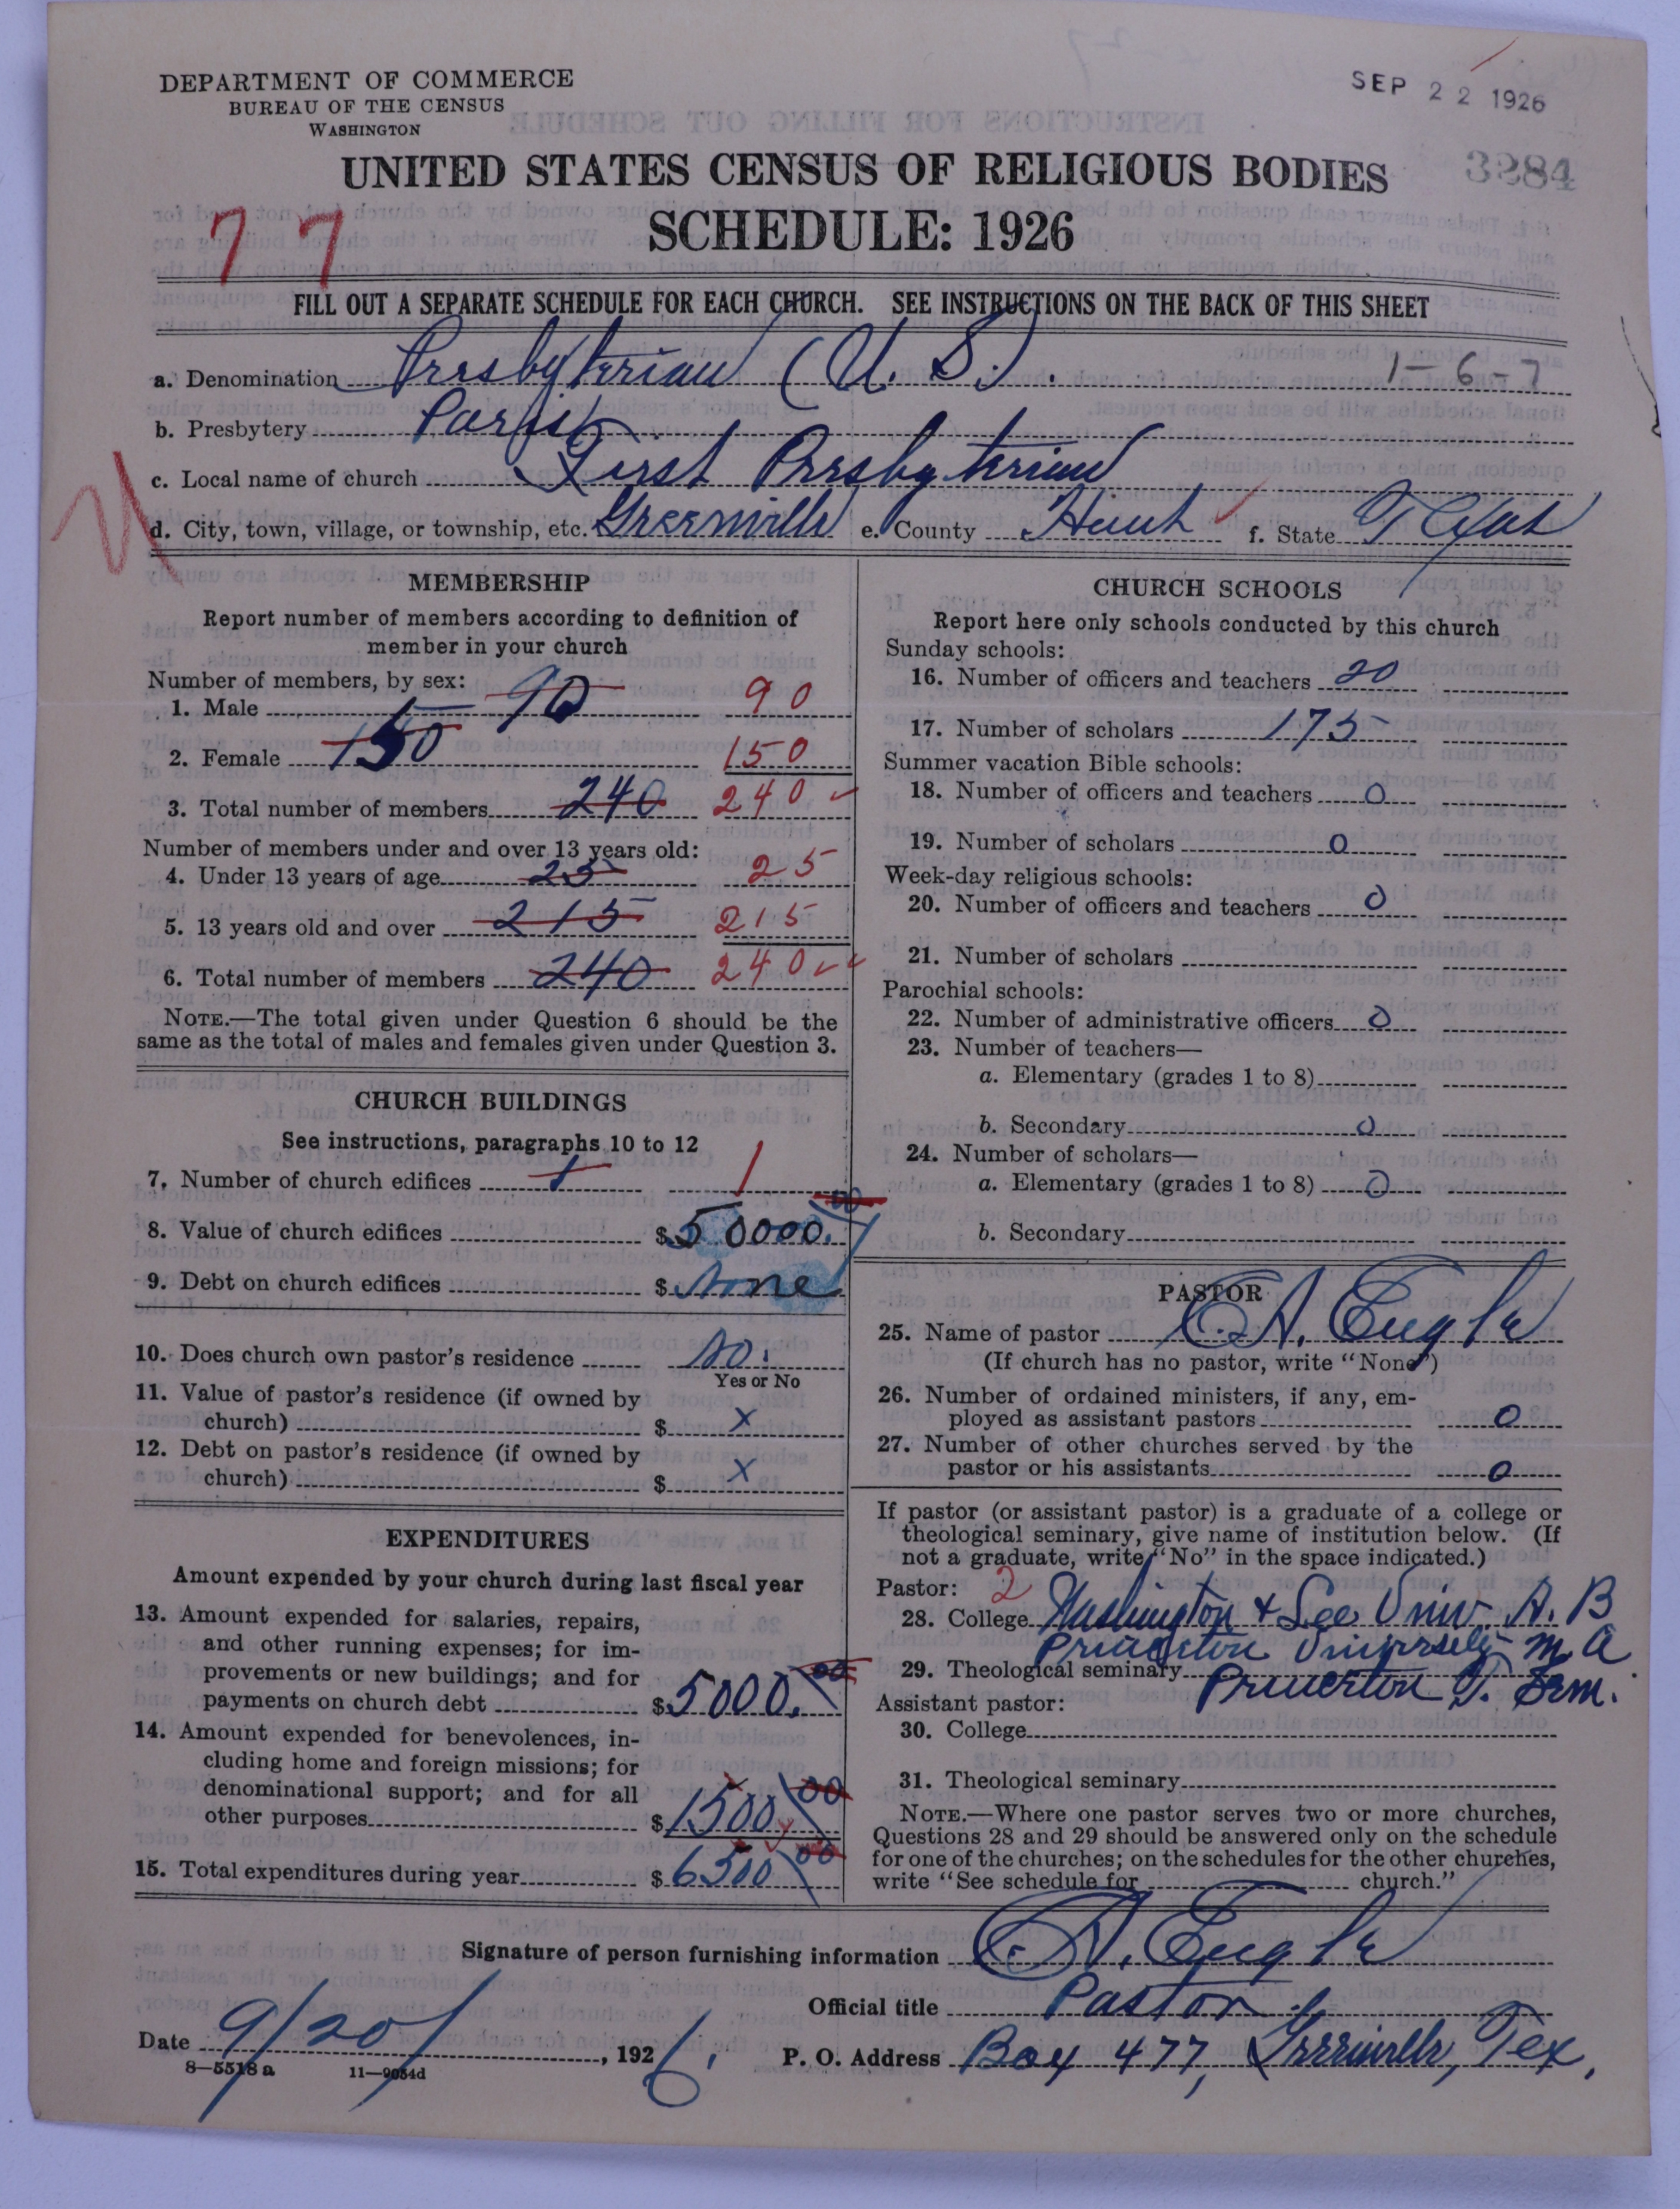 DEPARTMENT OF COMMERCE
BUREAU OF THE CENSUS
WASHINGTON
SEP 22 1926
3284
UNITED STATES CENSUS OF RELIGIOUS BODIES
SCHEDULE: 1926
77
FILL OUT A SEPARATE SCHEDULE FOR EACH CHURCH. SEE INSTRUCTIONS ON THE BACK OF THIS SHEET
a. Denomination Presbyterian (U. S.). 1-6-7
b. Presbytery Paris
c. Local name of church First Presbyterian
d. City, town, village, or township, etc. Greenville e. County Hunt f. State Texas
MEMBERSHIP
Report number of members according to definition of
member in your church
Number of members, by sex:
1. Male 90 90
2. Female 150 150
3. Total number of members 240 240
Number of members under and over 13 years old:
4. Under 13 years of age 25 25
5. 13 years old and over 215 215
6. Total number of members 240 240
NOTE.—The total given under Question 6 should be the
same as the total of males and females given under Question 3.
CHURCH BUILDINGS
See instructions, paragraphs 10 to 12
7. Number of church edifices 1 1
8. Value of church edifices $50000.00
9. Debt on church edifices $None
10. Does church own pastor's residence No.
Yes or No
11. Value of pastor's residence (if owned by
church) $ X
12. Debt on pastor's residence (if owned by
church) $ X
EXPENDITURES
Amount expended by your church during last fiscal year
13. Amount expended for salaries, repairs,
and other running expenses; for im-
provements or new buildings; and for
payments on church debt $5000.00
14. Amount expended for benevolences, in-
cluding home and foreign missions; for
denominational support; and for all
other purposes $1500 00
15. Total expenditures during year $6500 00
CHURCH SCHOOLS
Report here only schools conducted by this church
Sunday schools:
16. Number of officers and teachers 20
17. Number of scholars 175
Summer vacation Bible schools:
18. Number of officers and teachers 0
19. Number of scholars 0
Week-day religious schools:
20. Number of officers and teachers 0
21. Number of scholars
Parochial schools:
22. Number of administrative officers 0
23. Number of teachers—
a. Elementary (grades 1 to 8)
b. Secondary 0
24. Number of scholars—
a. Elementary (grades 1 to 8) 0
b. Secondary
PASTOR
25. Name of pastor Engle
(If church has no pastor, write "None")
26. Number of ordained ministers, if any, em-
ployed as assistant pastors 0
27. Number of other churches served by the
pastor or his assistants 0
If pastor (or assistant pastor) is a graduate of a college or
theological seminary, give name of institution below. (If
not a graduate, write "No" in the space indicated.)
Pastor: 2
28. College Washington & Lee Univ. A. B
Princeton University M A
29. Theological seminary Princeton T. Sem.
Assistant pastor:
30. College
31. Theological seminary
NOTE.—Where one pastor serves two or more churches,
Questions 28 and 29 should be answered only on the schedule
for one of the churches; on the schedules for the other churches,
write "See schedule for church."
Signature of person furnishing information Engle
Official title Pastor
Date 9/20/, 1926. P. O. Address Box 477, Greenville, Tex.
8—5518a 11—9054d